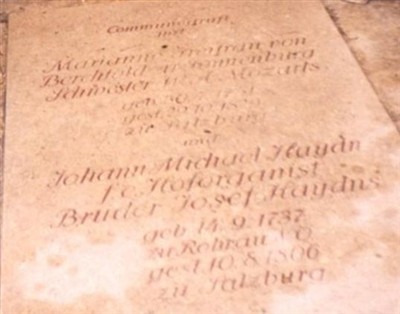 Communegruft
mit
Marianne Freifrau von
Berchtold zu Sonnenburg
Schwester W. A. Mozarts
geb 30. 7. 1751
gest 29. 10. 1829
zu Salzburg
und
Johann Michael Haydn
f. e. Hoforganist
Bruder Josef Haydns
geb 14. 9. 1737
zu Rohrau N.Ö.
gest 10. 8. 1806
zu Salzburg